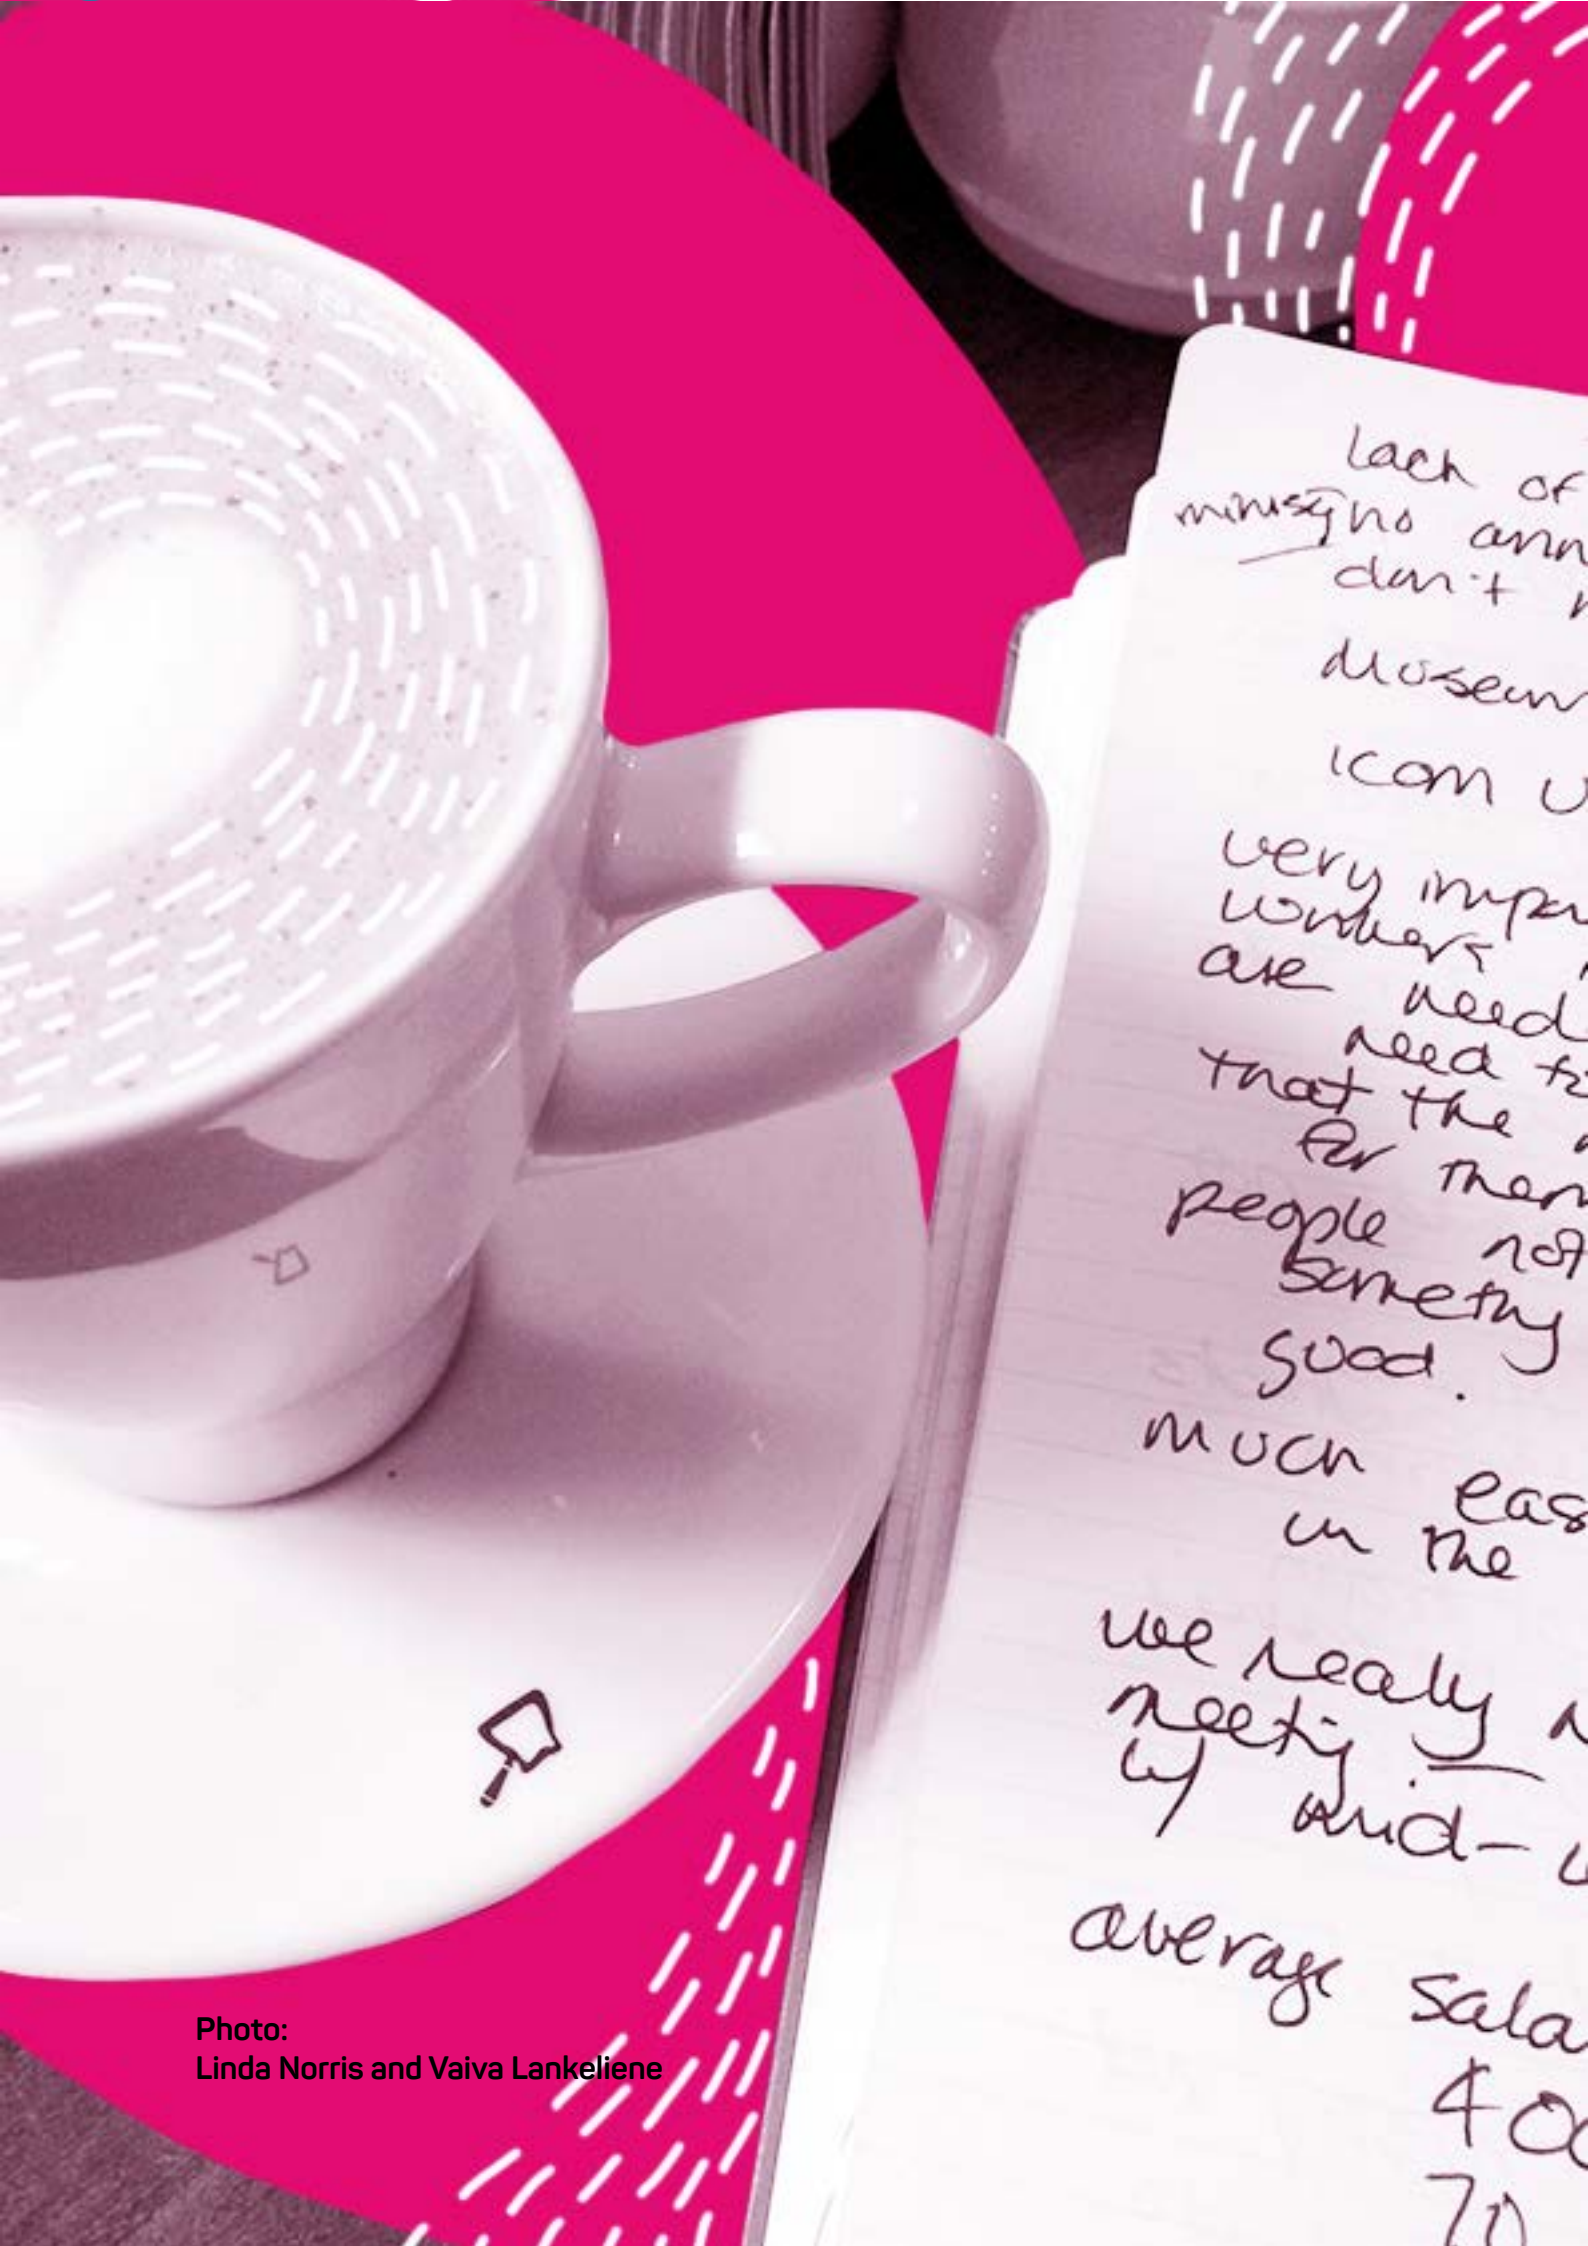 lack of
no ann
don't
museum
ICOM U
very impor
workers
are need
need to
that the
for them
people not
somethg
good.
much eas
in the
we really
meeting.
w/ mid-
average sala
400
70
Photo:
Linda Norris and Vaiva Lankeliene